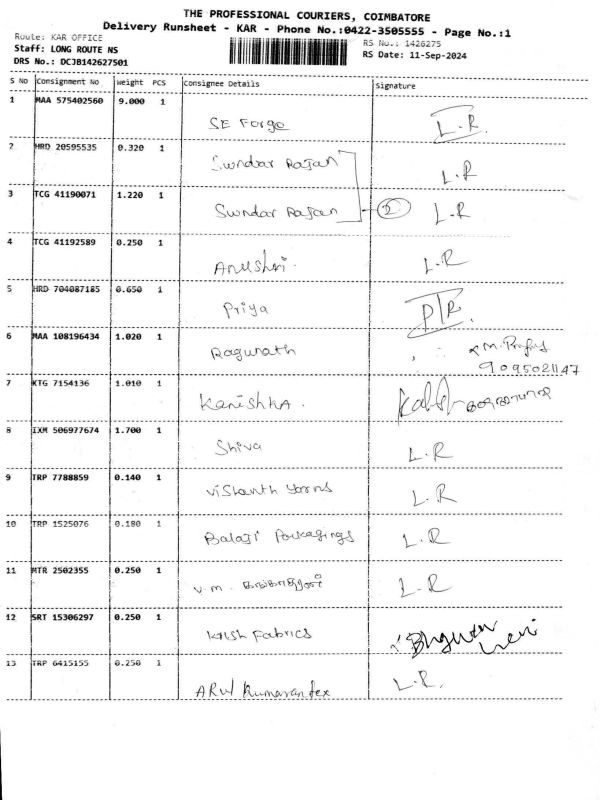 THE PROFESSIONAL COURIERS, COIMBATORE
Delivery Runsheet - KAR - Phone No.:0422-3505555 - Page No.:1
Route: KAR OFFICE
RS No.: 1426275
Staff: LONG ROUTE NS
RS Date: 11-Sep-2024
DRS No.: DCJB142627501
S No Consignment No Weight PCS Consignee Details Signature
1 MAA 575402560 9.000 1
SE Forge L.R
2 HRD 20595535 0.320 1
Sundar Rajan L.R
3 TCG 41190071 1.220 1
Sundar Rajan 2 L.R
4 TCG 41192589 0.250 1
Anushri. L.R
5 HRD 704087185 0.650 1
Priya D/R
6 MAA 108196434 1.020 1
Ragunath
9095021147
7 KTG 7154136 1.010 1
Kanishka.
8 IXM 506977674 1.700 1
Shiva L.R
9 TRP 7788859 0.140 1
Vishanth yarns L.R
10 TRP 1525076 0.180 1
Balaji Packagings L.R
11 MTR 2502355 0.250 1
V.M. L.R
12 SRT 15306297 0.250 1
Fabrics
13 TRP 6415155 0.250 1
ARUL Kumaran tex L.R.